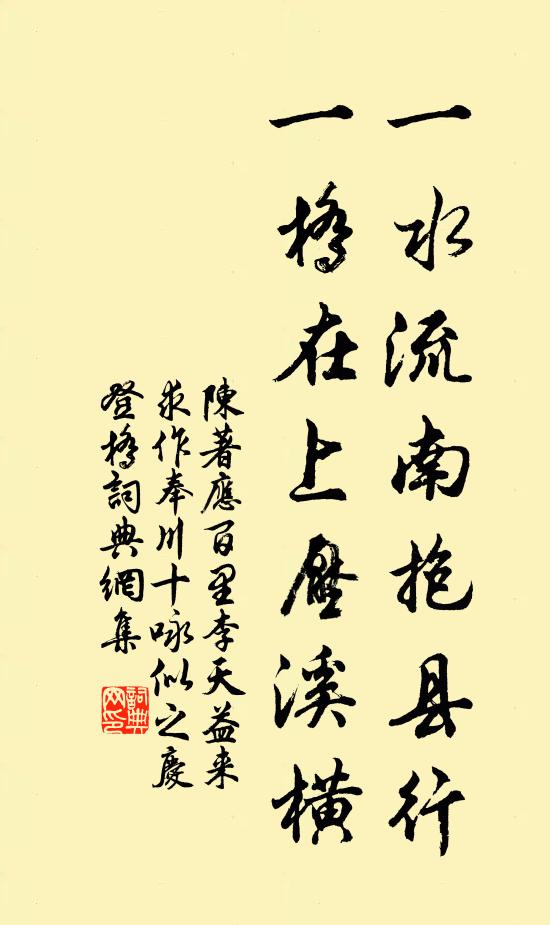 一水流南抱县行
一橋在上壓溪橫
陳著應百里李天益来
求作奉川十咏似之慶
登橋詞典網集
詞典网印